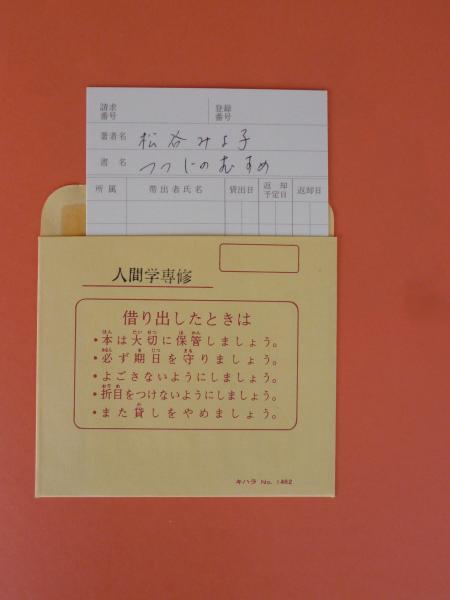 請求番号 登録番号
著者名 松谷みよ子
書名 つつじのむすめ
所属 帯出者氏名 貸出日 返却予定日 返却日
人間学専修
借り出したときは
・本は大切に保管しましょう。
・必ず期日を守りましょう。
・よごさないようにしましょう。
・折目をつけないようにしましょう。
・また貸しをやめましょう。
キハラ No. 1462